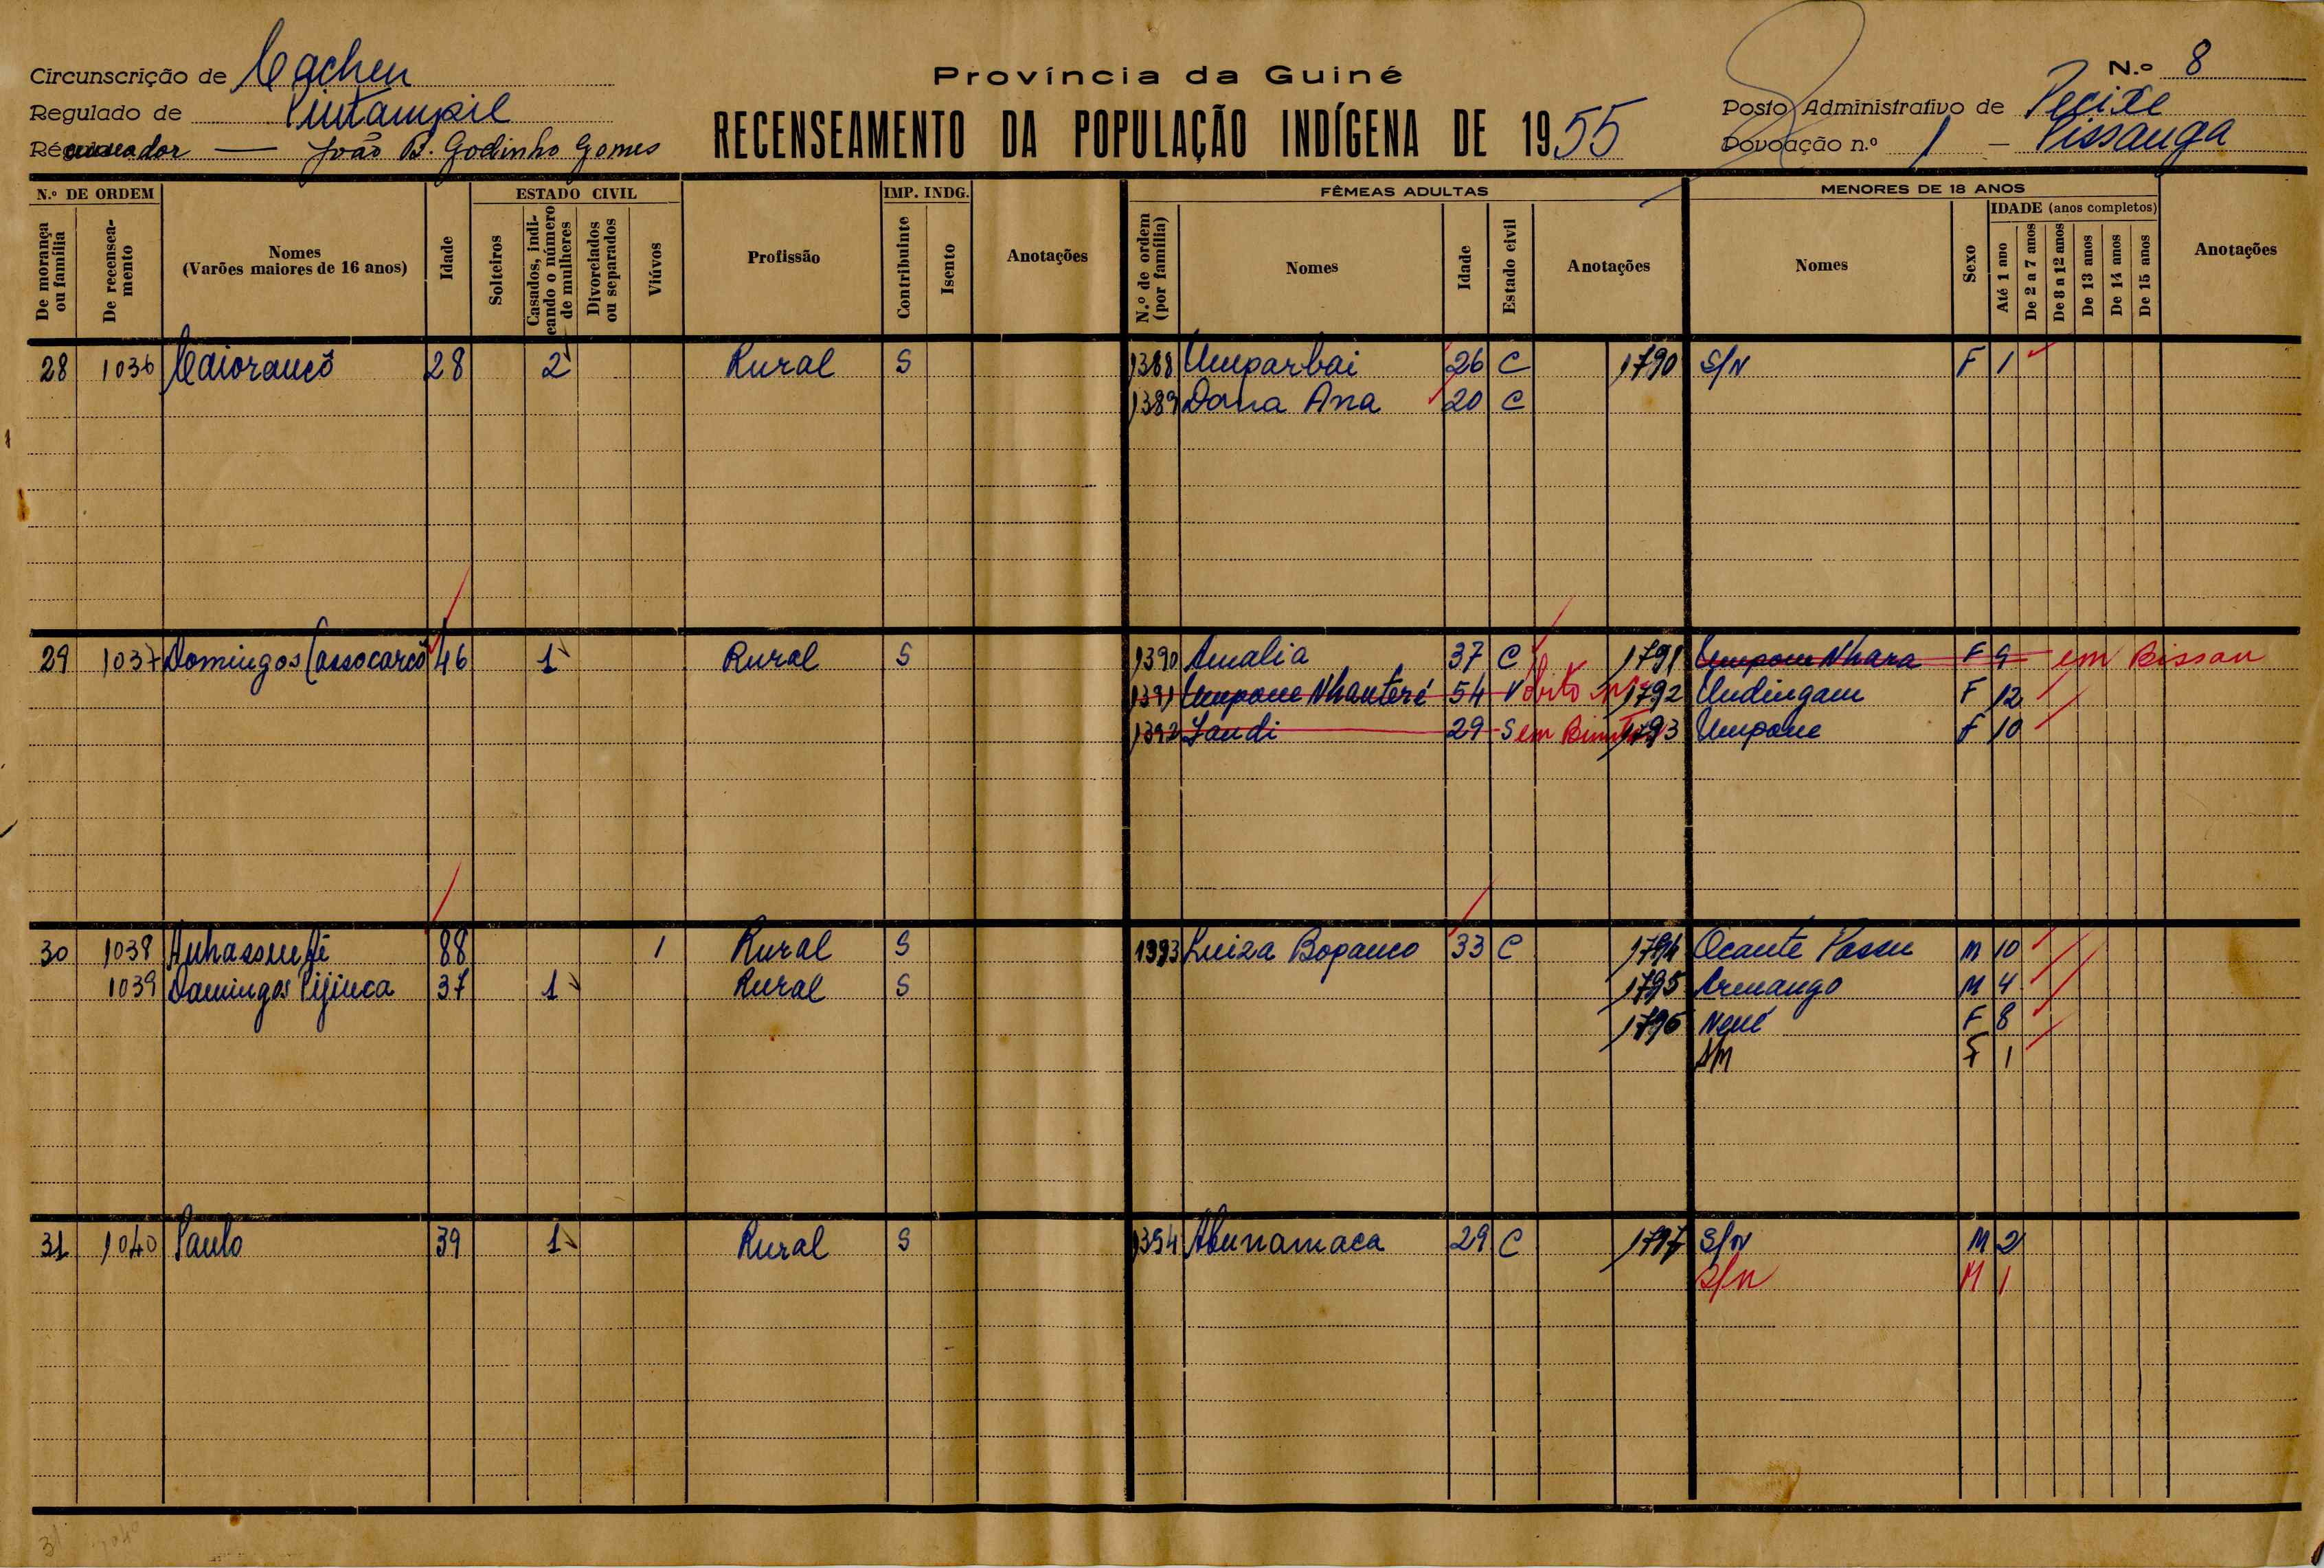 Circunscrição de Cacheu
Província da Guiné
N.º 8
Regulado de Pintampil
RECENSEAMENTO DA POPULAÇÃO INDÍGENA DE 1955
Posto Administrativo de Pecixe
Recenseador — João B. Godinho Gomes
Povoação n.º 1 – Pissanga
N.º DE ORDEM
De morança ou família
De recenseamento
Nomes (Varões maiores de 16 anos)
Idade
ESTADO CIVIL
Solteiros
Casados, indicando o número de mulheres
Divorciados ou separados
Viúvos
Profissão
IMP. INDG.
Contribuinte
Isento
Anotações
FÊMEAS ADULTAS
N.º de ordem (por família)
Nomes
Idade
Estado civil
Anotações
MENORES DE 18 ANOS
Nomes
Sexo
IDADE (anos completos)
Até 1 ano
De 2 a 7 anos
De 8 a 12 anos
De 13 anos
De 14 anos
De 15 anos
Anotações
28 1036 Caiorancô 28 2 Rural S 1388 Umparbai 26 C 1790 S/N F 1
1389 Dona Ana 20 C
29 1037 Domingos Cassocarcô 46 1 Rural S 1390 Amalia 37 C 1791 Umpone Nhara F 9 em Bissau
1391 Umpone Nhanteré 54 V obito 1792 Undingam F 12
1392 Landi 29 S em 1793 Umpone F 10
30 1038 88 1 Rural S 1393 Luiza Bopanco 33 C 1794 Ocante Passu M 10
1039 Domingos Pijinca 37 1 Rural S 1795 Armango M 4
1796 Nené F 8
S/N F 1
31 1040 Paulo 39 1 Rural S 1394 Abunamaca 29 C 1797 S/N M 2
S/n M 1